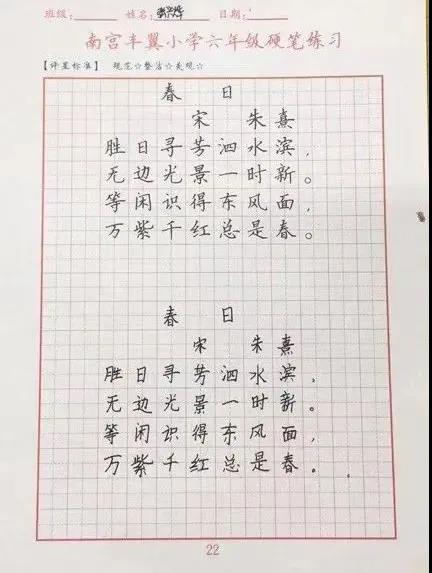 班级: 姓名: 日期:
南宫丰翼小学六年级硬笔练习
【评星标准】 规范☆整洁☆美观☆
春 日
宋 朱熹
胜日寻芳泗水滨,
无边光景一时新。
等闲识得东风面,
万紫千红总是春。
春 日
宋 朱熹
胜日寻芳泗水滨,
无边光景一时新。
等闲识得东风面,
万紫千红总是春。
22